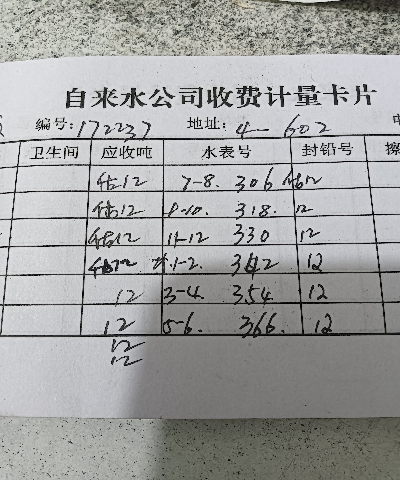 自来水公司收费计量卡片
编号: 172237 地址: 4-602
卫生间 应收吨 水表号 封铅号
估12 7-8. 306 估12
估12 9-10. 318. 12
估12 11-12 330 12
估12 1-2. 342 12
12 3-4. 354 12
12 5-6. 366. 12
12
12